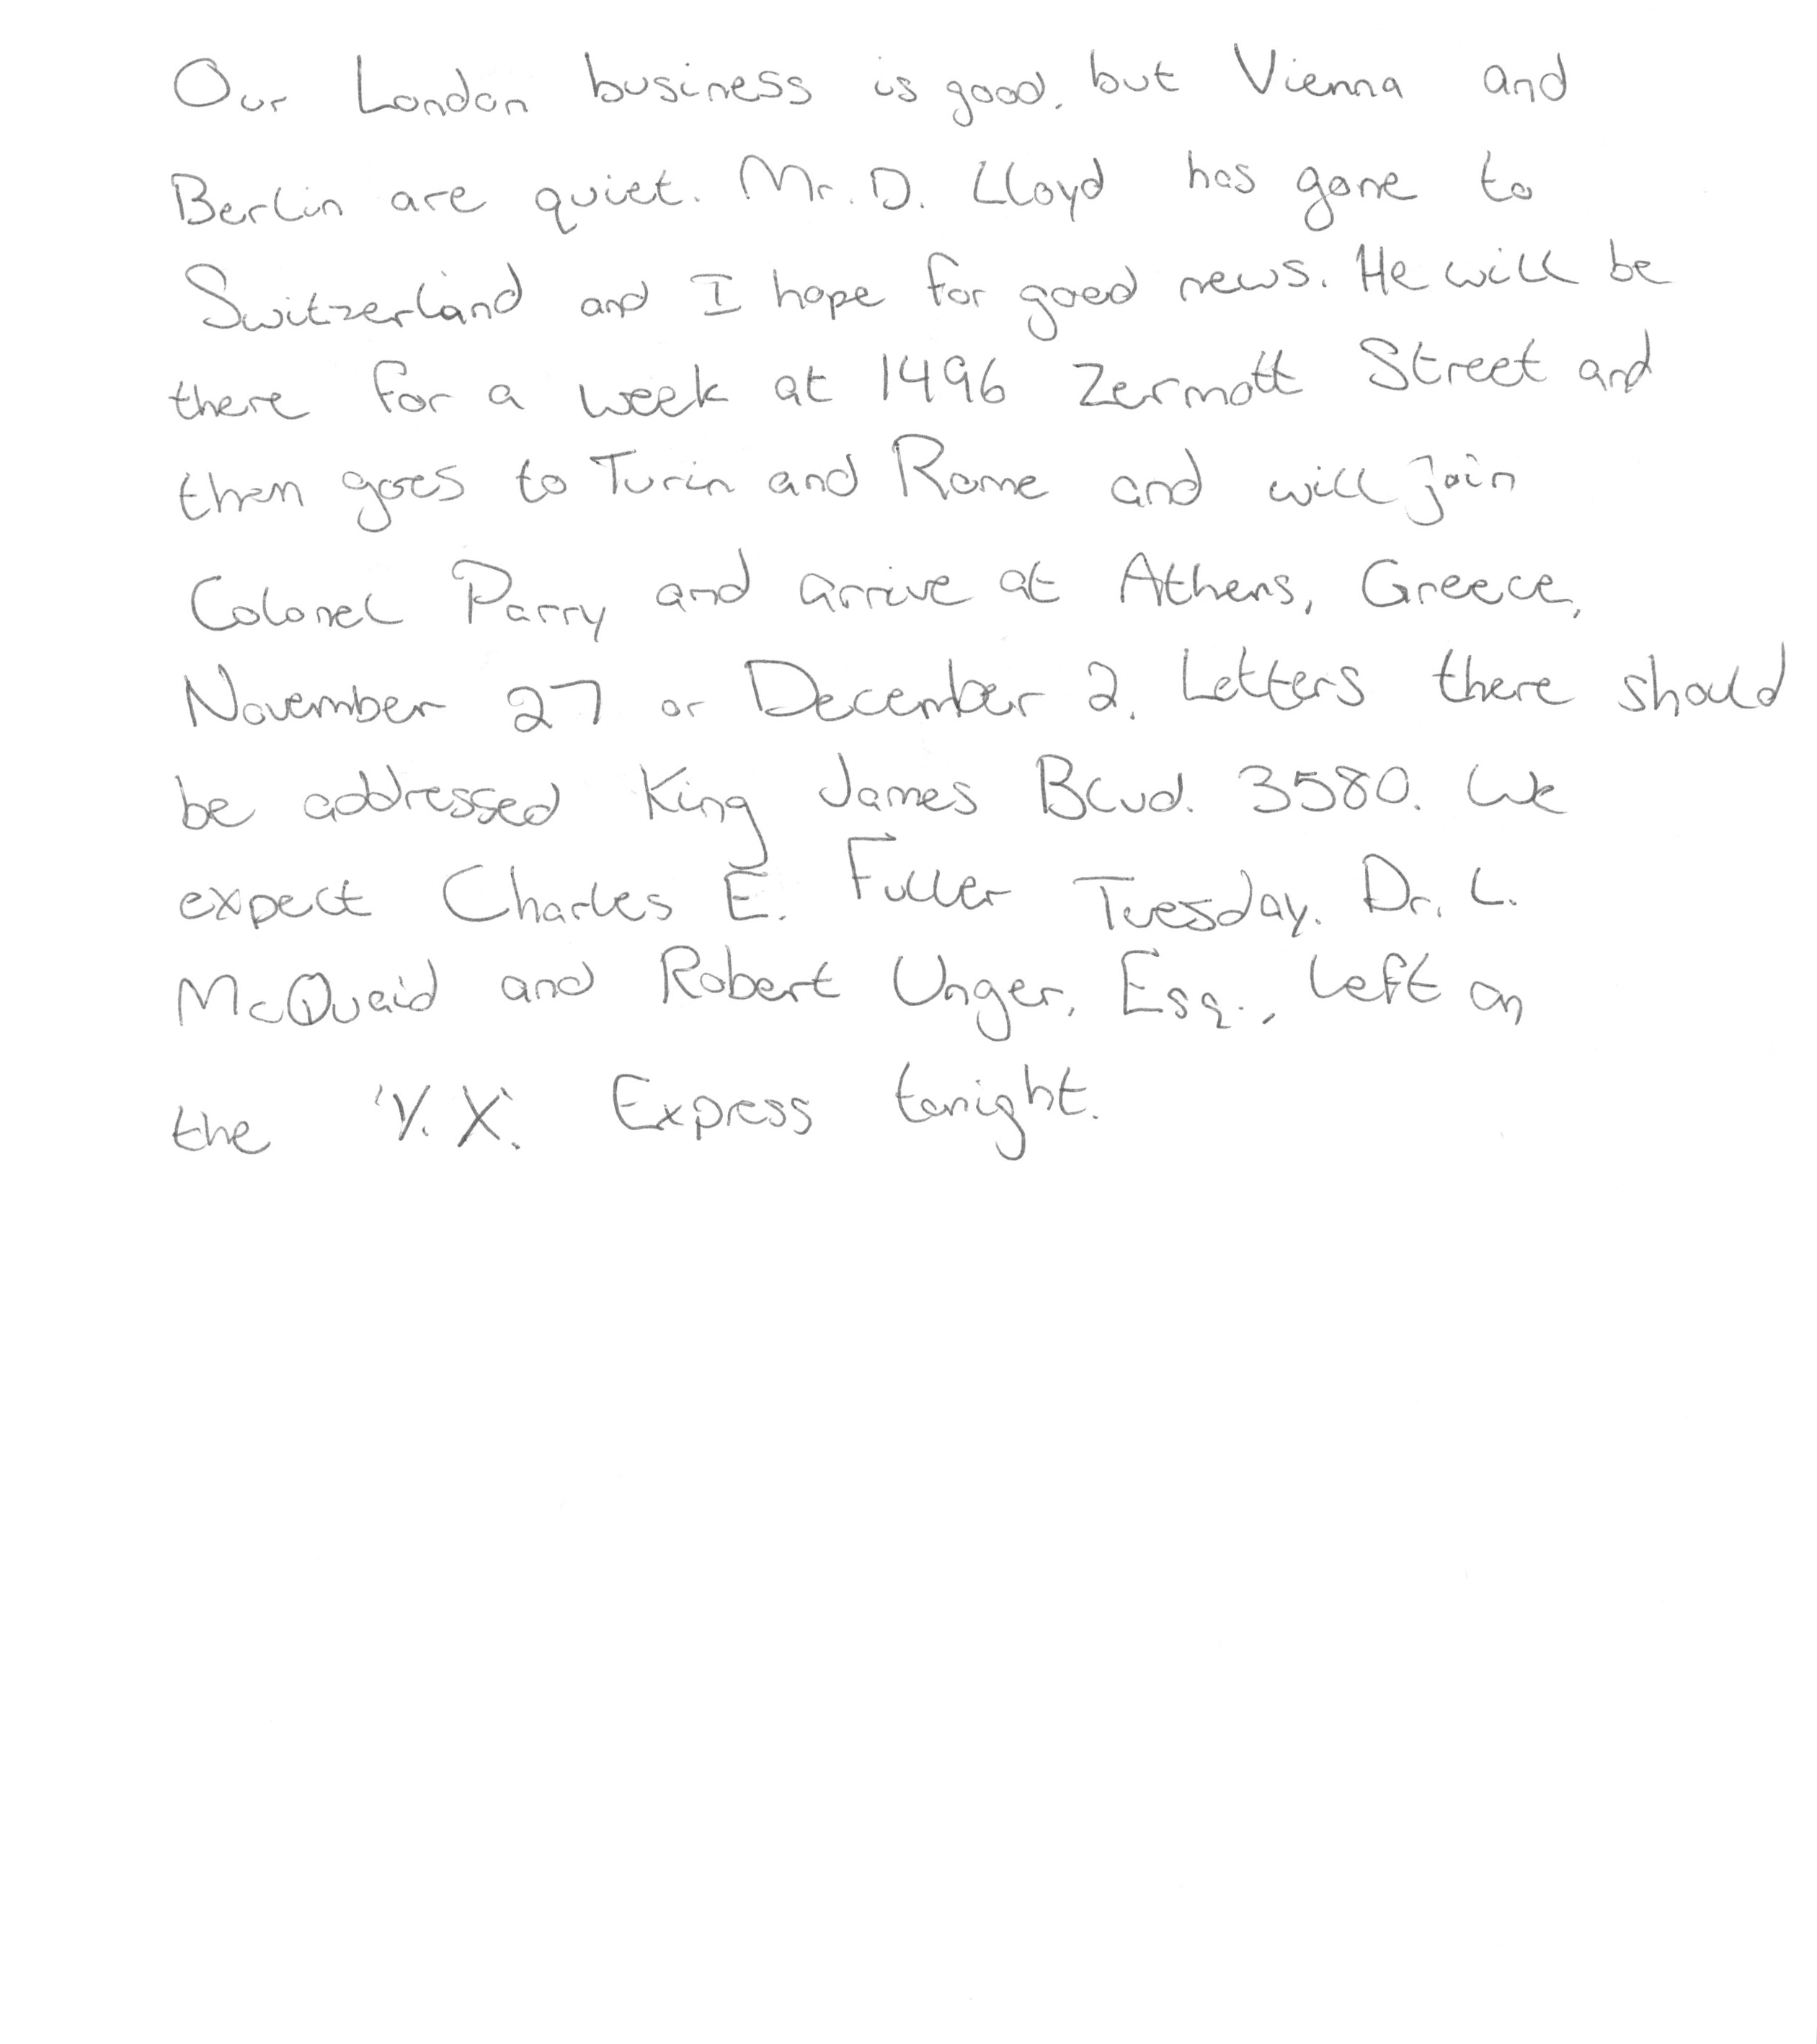 Our London business is good, but Vienna and
Berlin are quiet. Mr. D. Lloyd has gone to
Switzerland and I hope for good news. He will be
there for a week at 1496 Zermott Street and
then goes to Turin and Rome and will join
Colonel Parry and arrive at Athens, Greece,
November 27 or December 2. Letters there should
be addressed King James Blvd. 3580. We
expect Charles E. Fuller Tuesday. Dr. L.
McQuaid and Robert Unger, Esq., left on
the 'Y.X.' Express tonight.